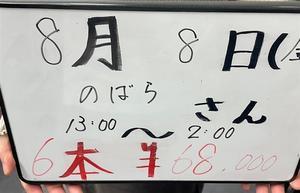 8月 8日(金
のばら さん
13:00〜2:00
6本 ¥68.000